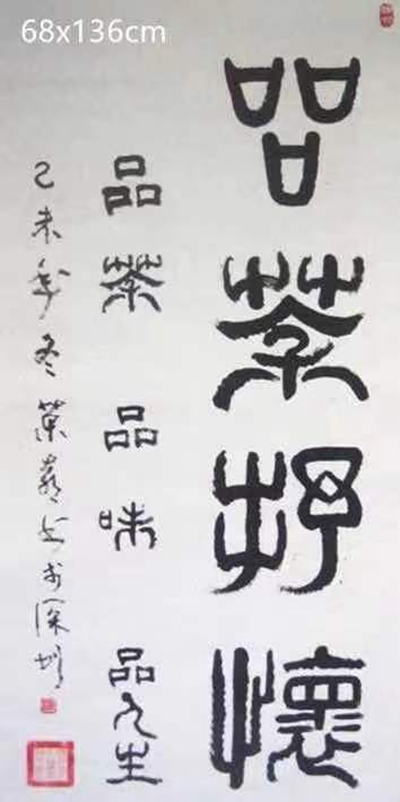 68x136cm
品茶抒懷
品茶 品味 品人生
己未年冬 于深圳